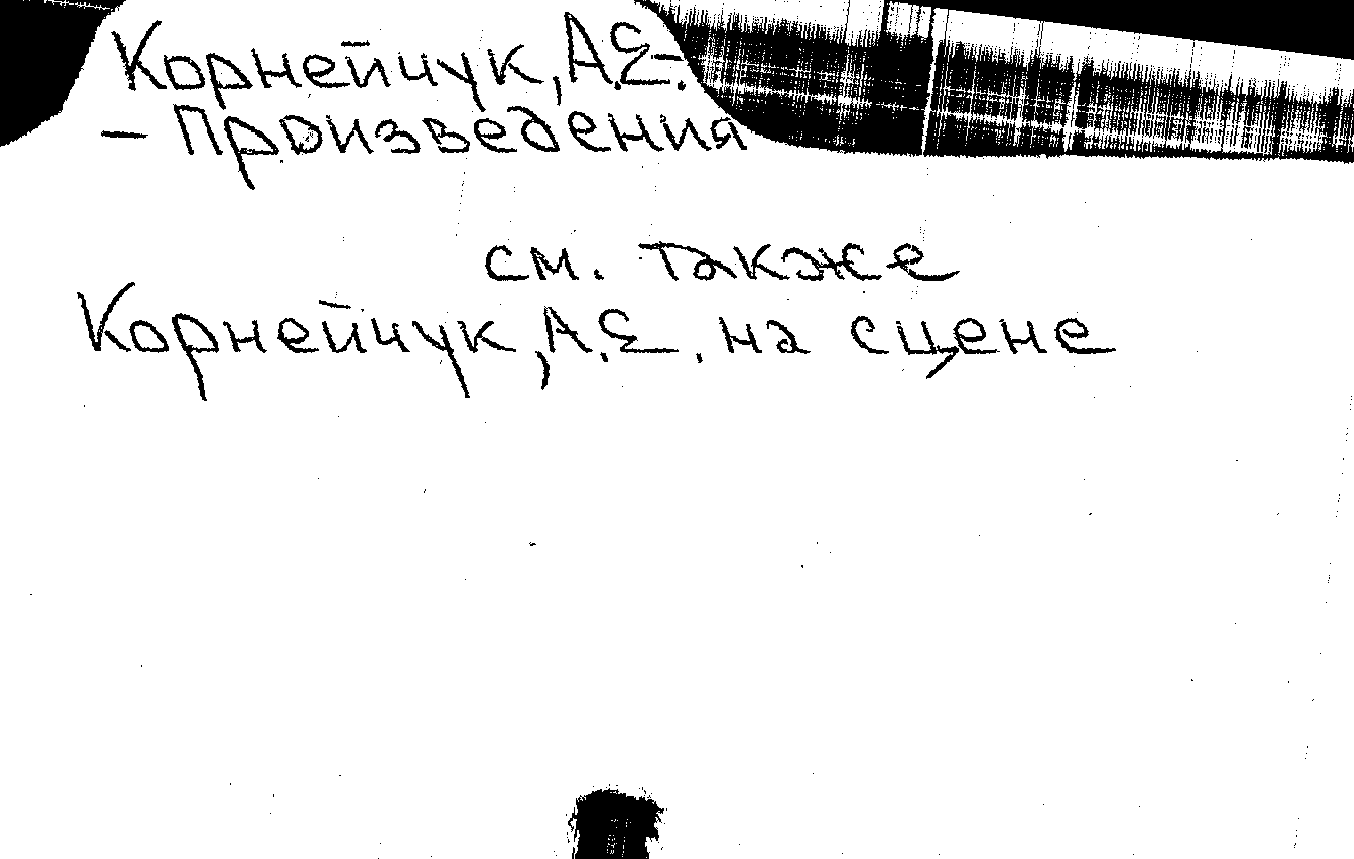 Корнейчук, А.Е.
– Произведения
см. также
Корнейчук, А.Е. на сцене